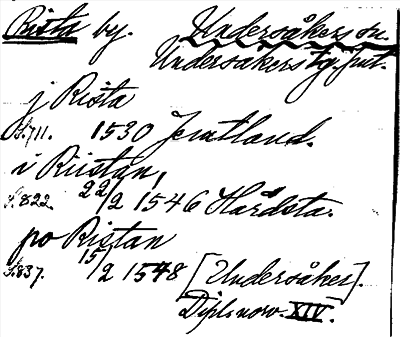 Rista by. Undersåkers sn.
Undersåkers tg, Jmt.
j Rista
S. 711. 1530 Jemtland.
i Riistan,
S. 822. 22/2 1546 Hårdsta.
po Ristan
S. 837. 15/2 1548 [Undersåker].
Dipl. norv. XIV.